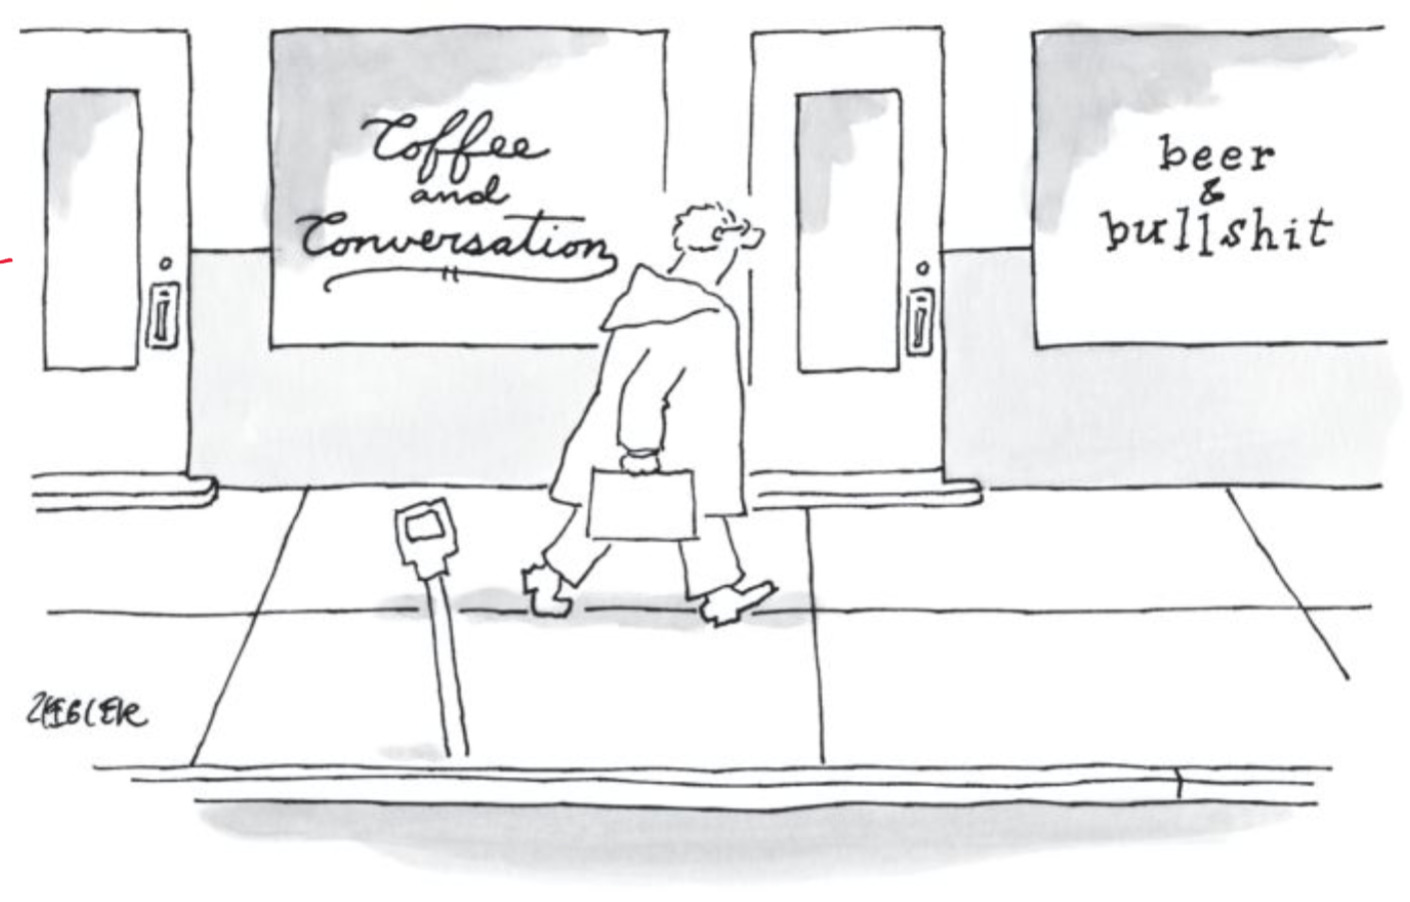 Coffee
and
Conversation
beer
&
bullshit
ZIEGLER